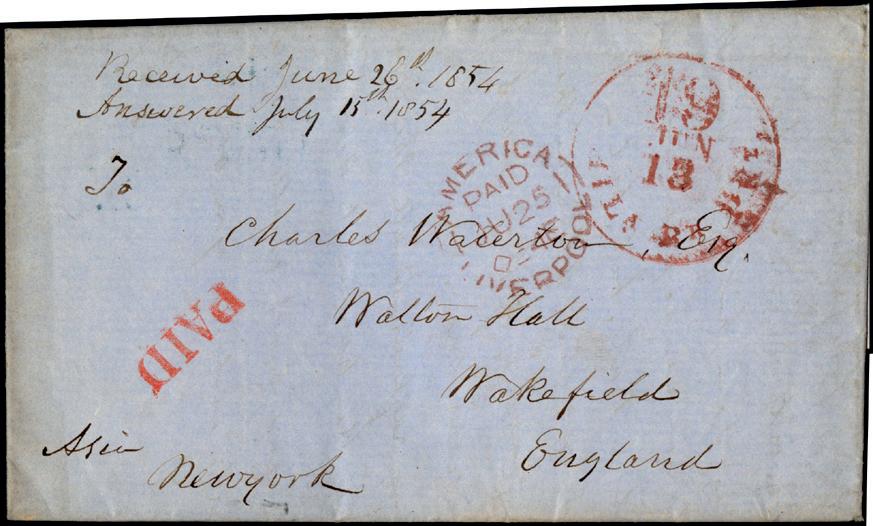 Received June 26th. 1854
Answered July 15th. 1854
To
19
JUN
13
AMERICA
PAID
25
LIVERPOOL
Charles Waterton, Esq.
Walton Hall
Wakefield
England
PAID
Asia
Newyork